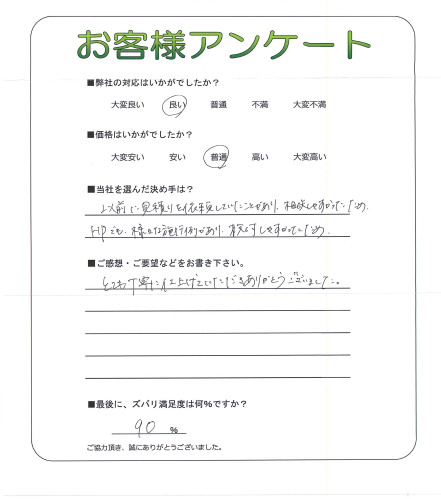 お客様アンケート
■弊社の対応はいかがでしたか？
大変良い 良い 普通 不満 大変不満
■価格はいかがでしたか？
大変安い 安い 普通 高い 大変高い
■当社を選んだ決め手は？
以前に見積りを依頼していたことがあり、相談しやすかったため。
HPでも、様々な施行例があり、
■ご感想・ご要望などをお書き下さい。
とても丁寧に仕上げていただきありがとうございました。
■最後に、ズバリ満足度は何%ですか？
90 %
ご協力頂き、誠にありがとうございました。